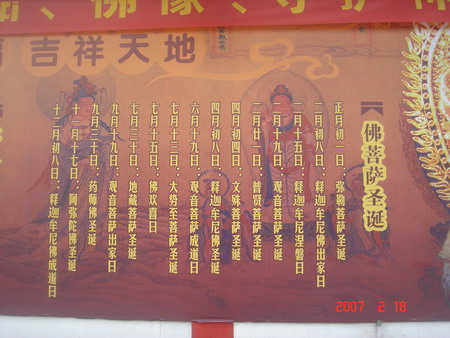 、佛像、守护
吉祥天地
【佛菩萨圣诞】
正月初一日：弥勒菩萨圣诞
二月初八日：释迦牟尼佛出家日
二月十五日：释迦牟尼涅磐日
二月十九日：观音菩萨圣诞
二月廿一日：普贤菩萨圣诞
四月初四日：文殊菩萨圣诞
四月初八日：释迦牟尼佛圣诞
六月十九日：观音菩萨成道日
七月十三日：大势至菩萨圣诞
七月十五日：佛欢喜日
七月三十日：地藏菩萨圣诞
九月十九日：观音菩萨出家日
九月三十日：药师佛圣诞
十一月十七日：阿弥陀佛圣诞
十二月初八日：释迦牟尼佛成道日
2007 2 18